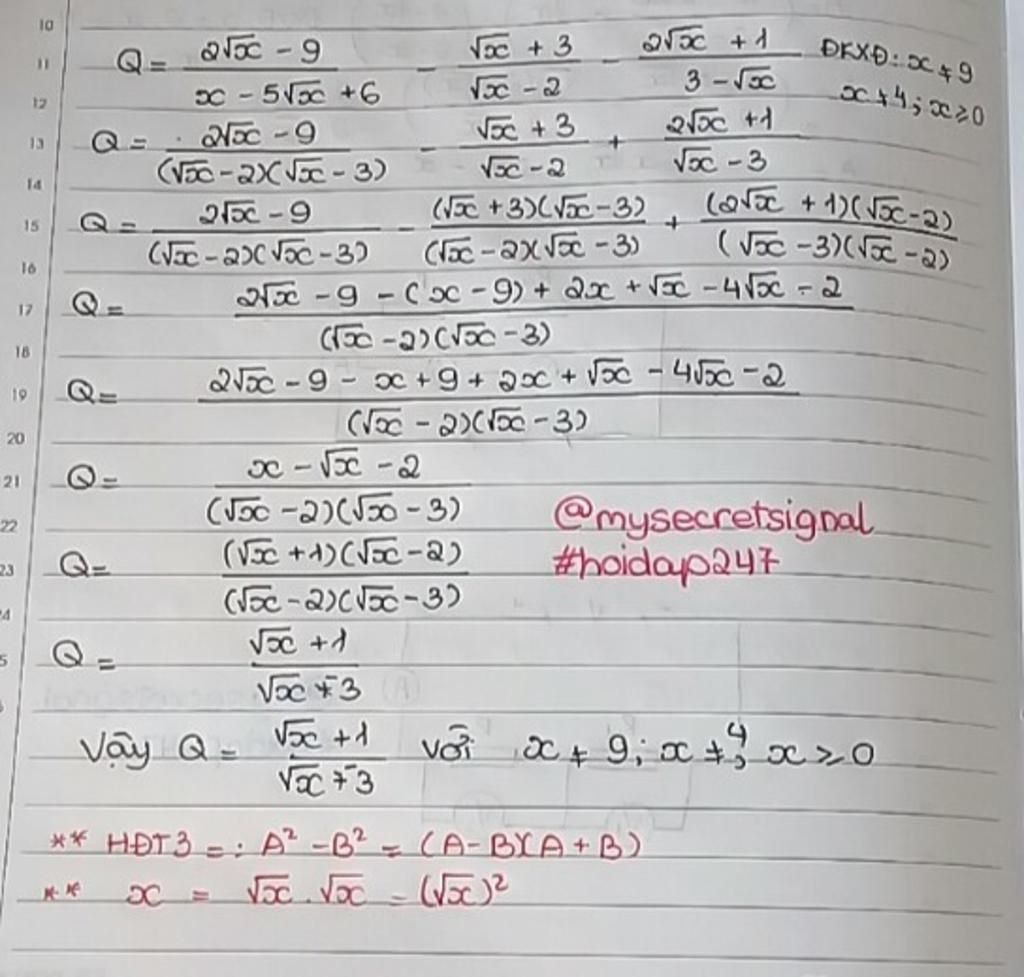 10
11 Q = (2√x - 9)/(x - 5√x + 6) - (√x + 3)/(√x - 2) - (2√x + 1)/(3 - √x) ĐKXĐ: x ≠ 9
12 x ≠ 4; x ≥ 0
13 Q = (2√x - 9)/((√x - 2)(√x - 3)) - (√x + 3)/(√x - 2) + (2√x + 1)/(√x - 3)
14
15 Q = (2√x - 9)/((√x - 2)(√x - 3)) - ((√x + 3)(√x - 3))/((√x - 2)(√x - 3)) + ((2√x + 1)(√x - 2))/((√x - 3)(√x - 2))
16
17 Q = (2√x - 9 - (x - 9) + 2x + √x - 4√x - 2)/((√x - 2)(√x - 3))
18
19 Q = (2√x - 9 - x + 9 + 2x + √x - 4√x - 2)/((√x - 2)(√x - 3))
20
21 Q = (x - √x - 2)/((√x - 2)(√x - 3))
@mysecretsignal
22
23 Q = ((√x + 1)(√x - 2))/((√x - 2)(√x - 3))
#hoidap247
4
5 Q = (√x + 1)/(√x - 3)
Vậy Q = (√x + 1)/(√x - 3) với x ≠ 9; x ≠ 4; x ≥ 0
** HĐT3 =: A² - B² = (A - B)(A + B)
** x = √x . √x = (√x)²